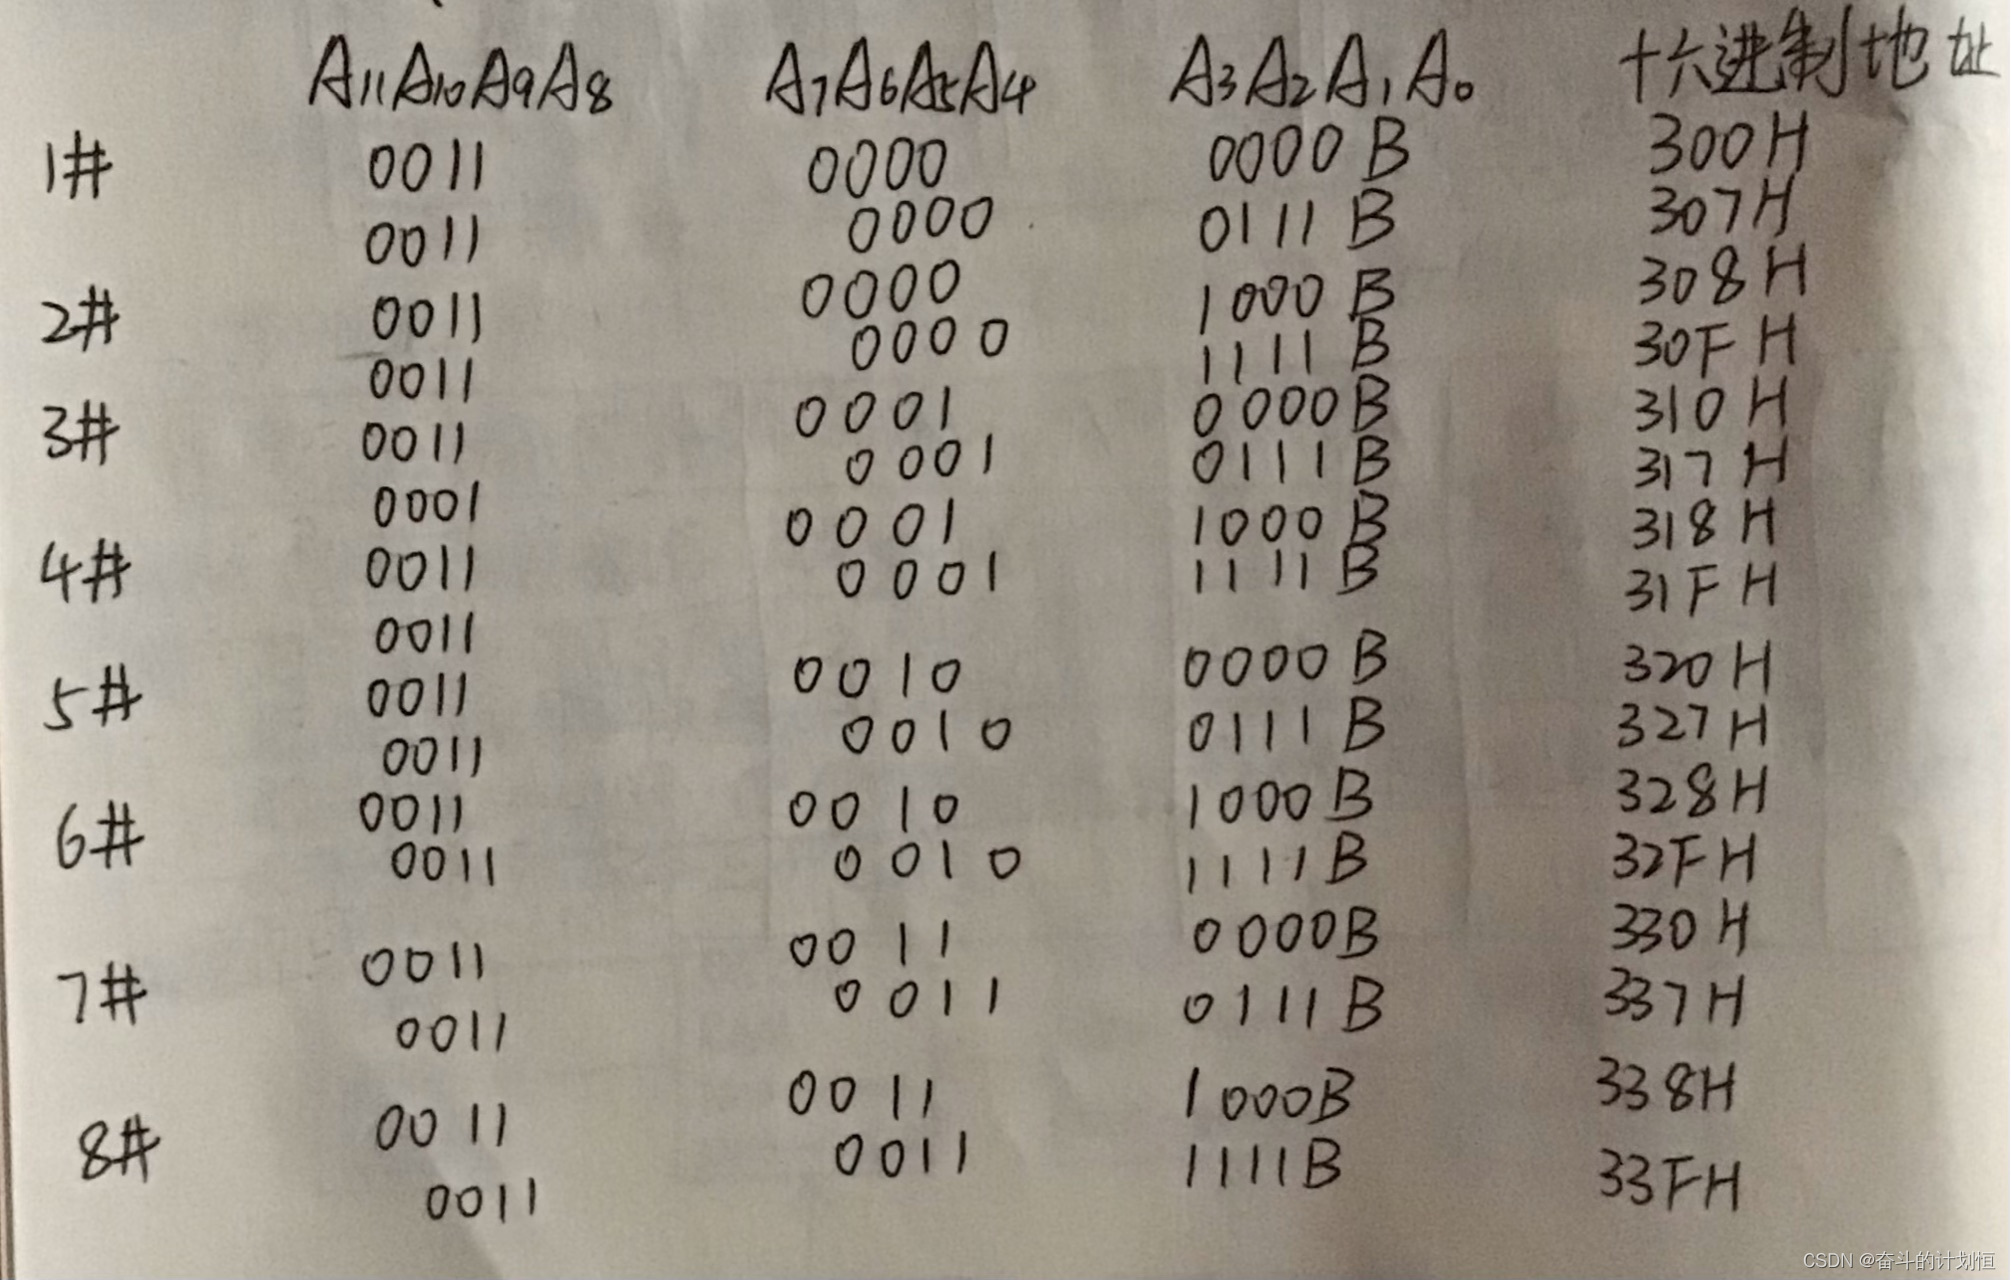 A₁₁A₁₀A₉A₈ A₇A₆A₅A₄ A₃A₂A₁A₀ 十六进制地址
1# 0011 0000 0000B 300H
0011 0000 0111B 307H
2# 0011 0000 1000B 308H
0011 0000 1111B 30FH
3# 0011 0001 0000B 310H
0001 0001 0111B 317H
4# 0011 0001 1000B 318H
0011 0001 1111B 31FH
5# 0011 0010 0000B 320H
0011 0010 0111B 327H
6# 0011 0010 1000B 328H
0011 0010 1111B 32FH
7# 0011 0011 0000B 330H
0011 0011 0111B 337H
8# 0011 0011 1000B 338H
0011 0011 1111B 33FH
CSDN @奋斗的计划恒